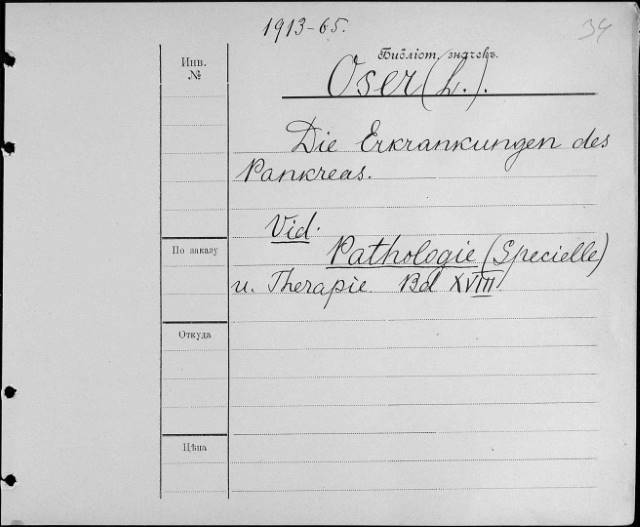 1913-65.
34
Инв.
№
Библіот. значекъ.
Oser (L.).
Die Erkrankungen des
Pankreas.
Vid.
По заказу
Pathologie (Specielle)
u. Therapie. Bd XVIII.
Откуда
Цѣна